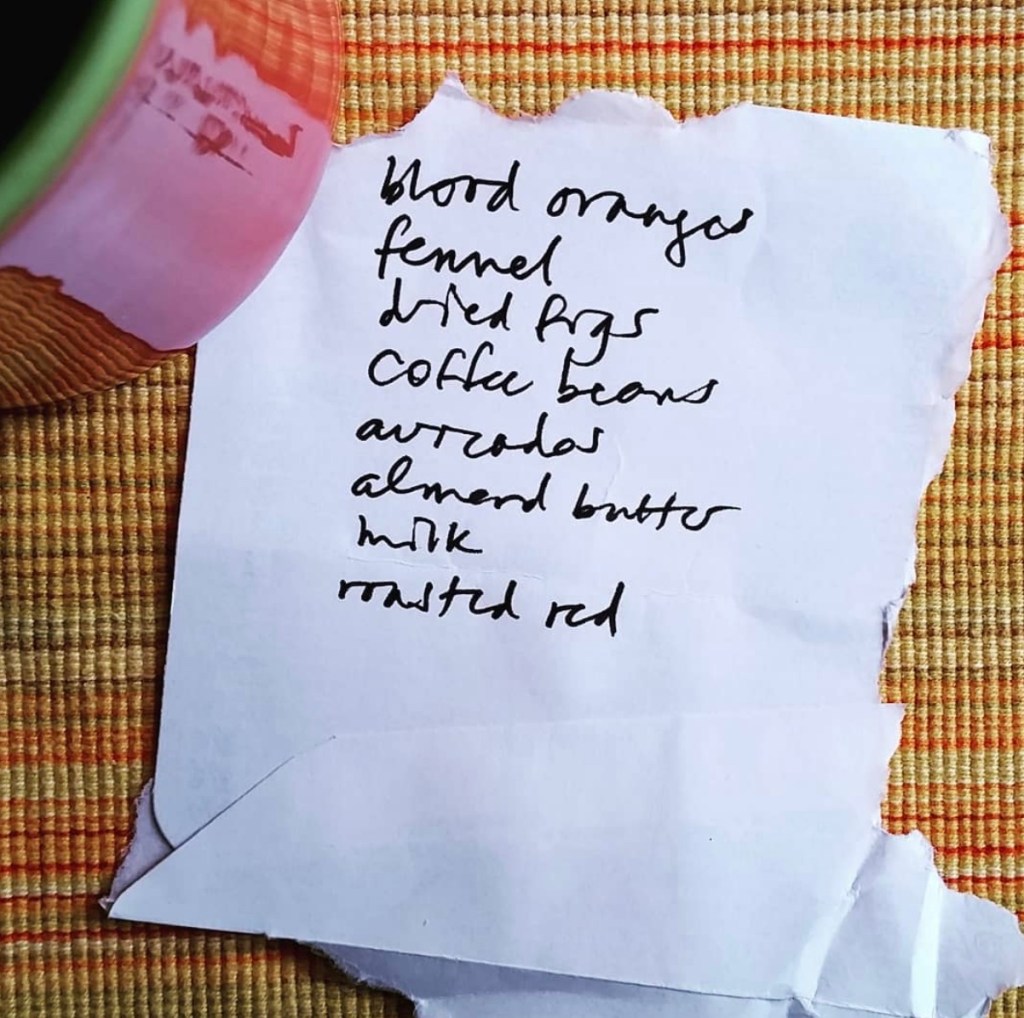 blood oranges
fennel
dried figs
coffee beans
avocados
almond butter
milk
roasted red